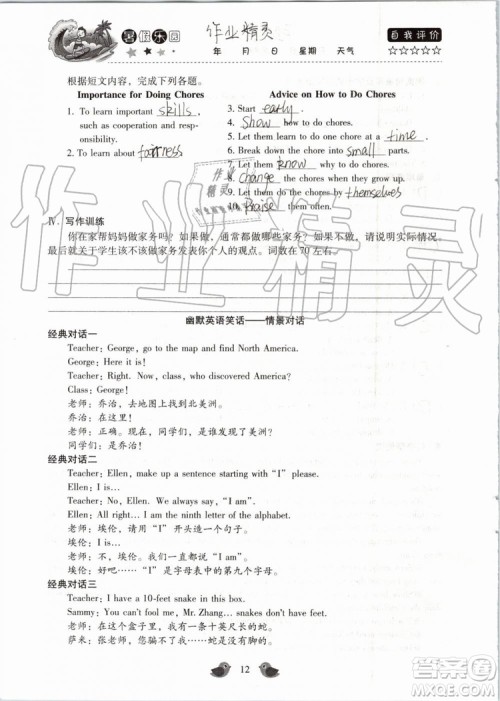 暑假乐园
作业精灵
年 月 日 星期 天气
自我评价
☆☆☆☆☆
根据短文内容，完成下列各题。
Importance for Doing Chores
1. To learn important skills,
such as cooperation and resp-
onsibility.
2. To learn about fairness
Advice on How to Do Chores
3. Start early.
4. Show how to do chores.
5. Let them learn to do one chore at a time.
6. Break down the chore into small parts.
7. Let them know why to do chores.
8. Change the chores when they grow up.
9. Let them do the chores by themselves
10. Praise them often.
Ⅳ. 写作训练
你在家帮妈妈做家务吗？如果做，通常都做哪些家务？如果不做，请说明实际情况。
最后就关于学生该不该做家务发表你个人的观点。词数在70左右。
幽默英语笑话——情景对话
经典对话一
Teacher: George, go to the map and find North America.
George: Here it is!
Teacher: Right. Now, class, who discovered America?
Class: George!
老师：乔治，去地图上找到北美洲。
乔治：在这里！
老师：正确。现在，同学们，是谁发现了美洲？
同学们：是乔治！
经典对话二
Teacher: Ellen, make up a sentence starting with “I” please.
Ellen: I is...
Teacher: No, Ellen. We always say, “I am”.
Ellen: All right... I am the ninth letter of the alphabet.
老师：埃伦，请用“I”开头造一个句子。
埃伦：I is...
老师：不，埃伦。应当说“I am”。
埃伦：好吧……“I”是字母表中的第九个字母。
经典对话三
Teacher: I have a 10-feet snake in this box.
Sammy: You can't fool me, Mr. Zhang... snakes don't have feet.
老师：在这个盒子里，我有一条十英尺长的蛇。
萨米：张老师，您骗不了我……蛇是没有脚的。
12
作业精灵
答案圈
MXQE.COM